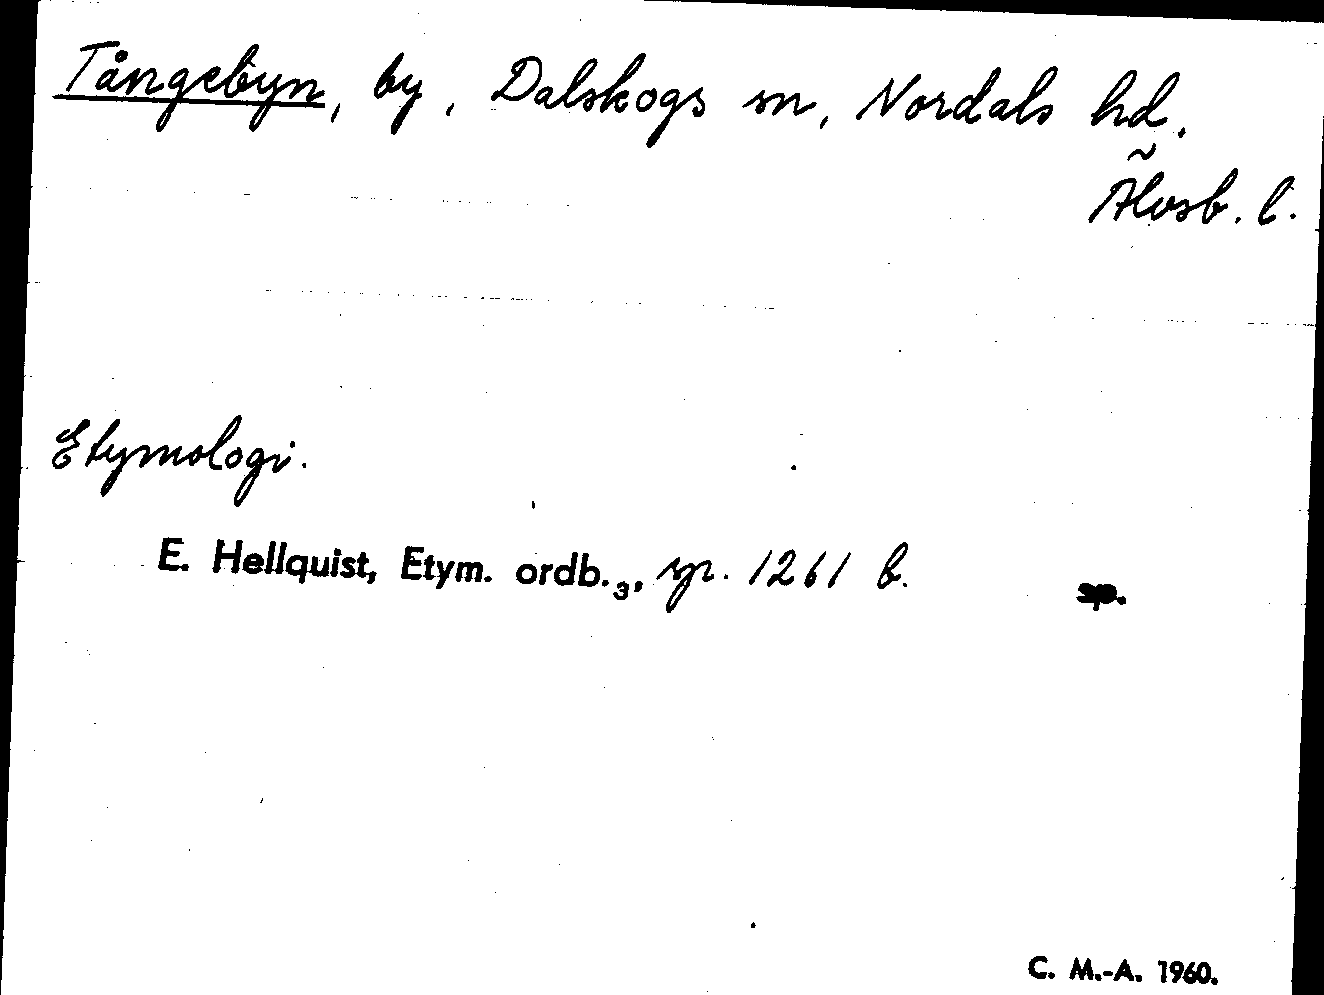 Tångebyn, by, Dalskogs sn, Nordals hd,
Älvsb. l.
Etymologi.
E. Hellquist, Etym. ordb.₃, sp. 1261 b.
C. M.-A. 1960.